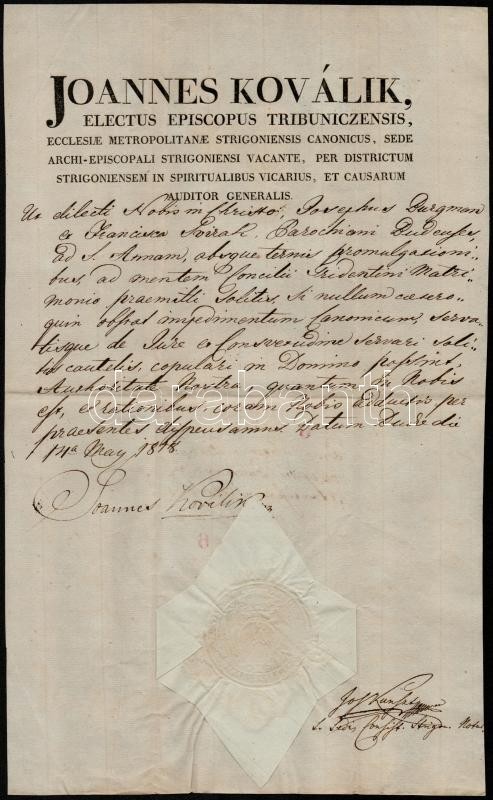 JOANNES KOVÁLIK,
ELECTUS EPISCOPUS TRIBUNICZENSIS,
ECCLESIÆ METROPOLITANÆ STRIGONIENSIS CANONICUS, SEDE
ARCHI-EPISCOPALI STRIGONIENSI VACANTE, PER DISTRICTUM
STRIGONIENSEM IN SPIRITUALIBUS VICARIUS, ET CAUSARUM
AUDITOR GENERALIS.
Ut dilecti Nobis in Christo: Josephus Burgman
et Francisca Svirak, Parochiani Budenses,
ad S. Annam, absque ternis promulgationi-
bus, ad mentem Concilii Tridentini Matri-
monio praemitti Solitis, Si nullum caetero-
quin obstat impedimentum Canonicum, serva-
tisque de Jure et Consvetudine servari Soli-
tis cautelis, copulari in Domino possint,
Authoritate Nostra quantum in Nobis
est, et rationibus coram Nobis per
praesentes dispensamus. Datum Budae die
14a May 1818.
Joannes Kovalik
darabanth
S. Sedis Consist. Strigon. Notar.